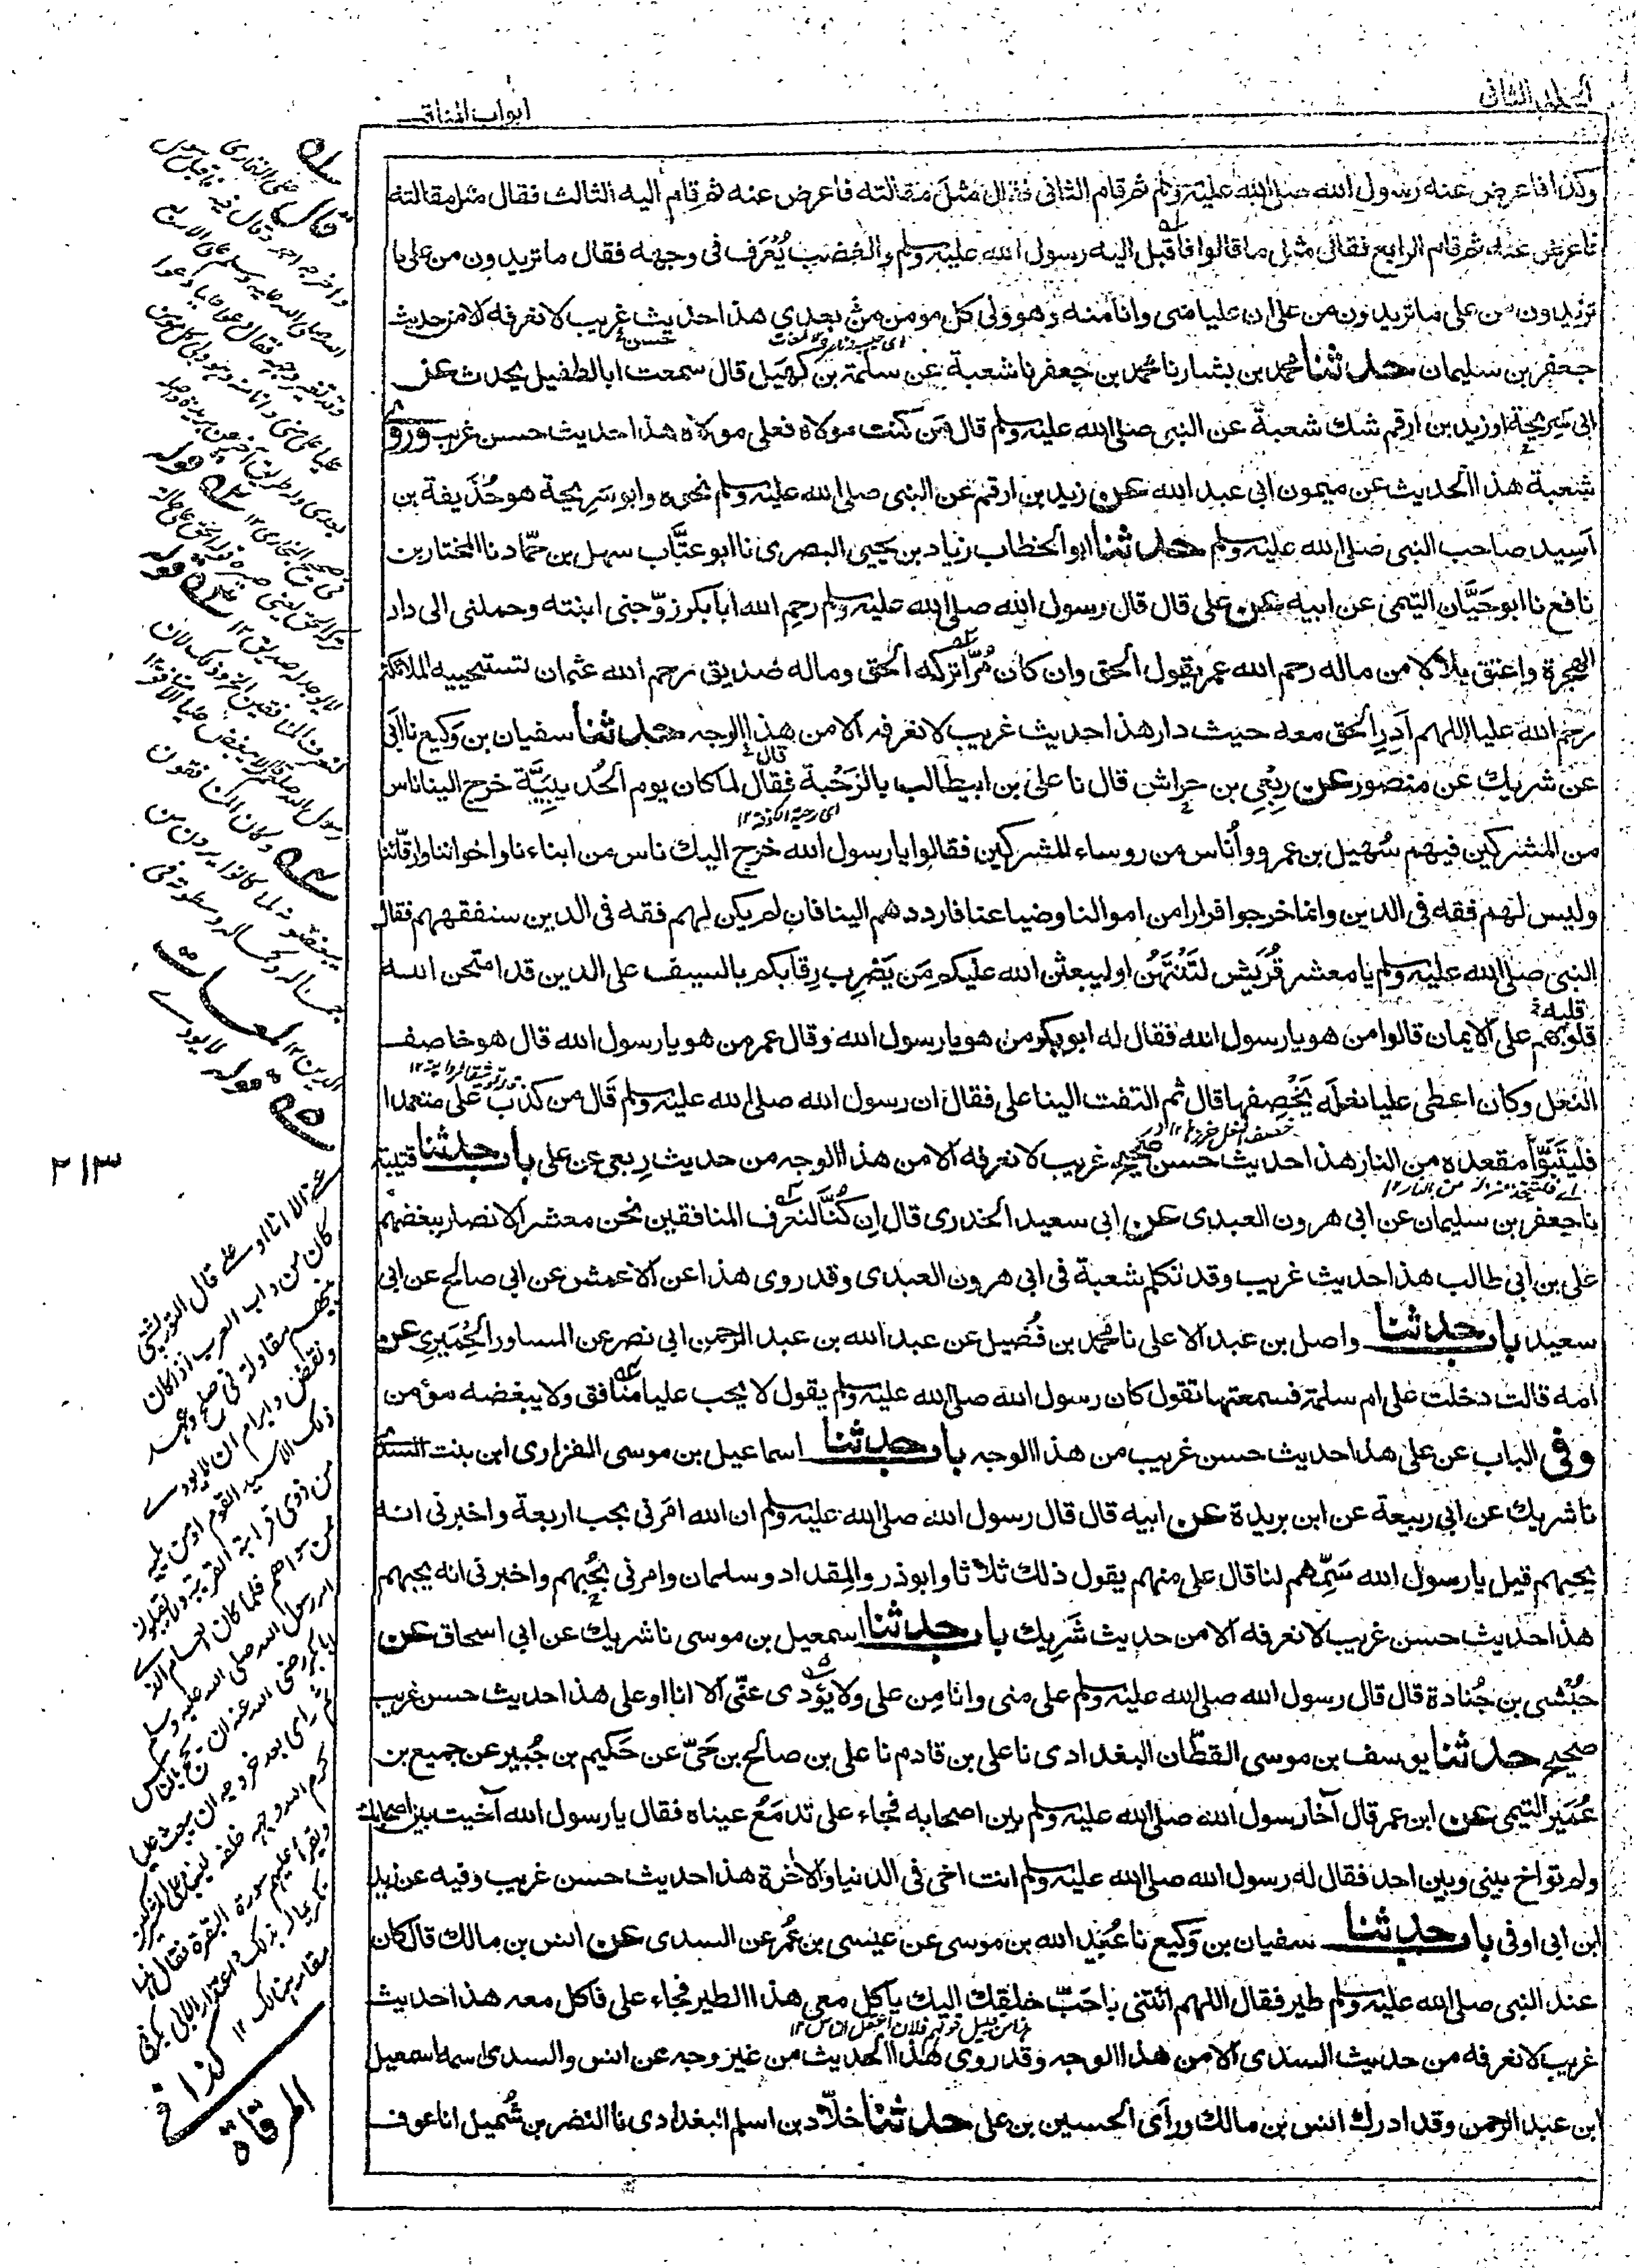 المجلد الثانى
ابواب المناقب
وكذا فاعرض عنه رسول الله صلى الله عليه وسلم ثم قام الثانى فقال مثل مقالته فاعرض عنه ثم قام اليه الثالث فقال مثل مقالته
فاعرض عنه ثم قام الرابع فقال مثل ما قالوا فاقبل اليه رسول الله عليه وسلم والغضب يُعْرَف فى وجهه فقال ما تريدون من على ما
تريدون من على ما تريدون من على ان عليا منى وانا منه وهو ولى كل مومن من بعدى هذا حديث غريب لا نعرفه الا من حديث
جعفر بن سليمان حدثنا محمد بن بشار نا محمد بن جعفر نا شعبة عن سلمة بن كهيل قال سمعت ابا الطفيل يحدث عن
ابى سَرِيحَة او زيد بن ارقم شك شعبة عن النبى صلى الله عليه وسلم قال من كنت مولاه فعلى مولاه هذا حديث حسن غريب ورو
شعبة هذا الحديث عن ميمون ابى عبد الله عن زيد بن ارقم عن النبى صلى الله عليه وسلم نحوه وابو سَرِيحة هو حُذَيفة بن
اَسِيد صاحب النبى صلى الله عليه وسلم حدثنا ابو الخطاب زياد بن يحيى البصرى نا ابو عتَّاب سهل بن حمّاد نا المختار بن
نافع نا ابو حَيَّان التيمى عن ابيه عن على قال قال رسول الله صلى الله عليه وسلم رحم الله ابا بكر زوّجنى ابنته وحملنى الى دار
الهجرة واعتق بلالا من ماله رحم الله عمر يقول الحق وان كان مُرًّا تركه الحق وماله صديق رحم الله عثمان تستحييه الملائكة
رحم الله عليا اللهم اَدِرِ الحق معه حيث دار هذا حديث غريب لا نعرفه الا من هذا الوجه حدثنا سفيان بن وَكيع نا ابى
عن شريك عن منصور عن رِبْعِى بن حراش قال نا على بن ابيطالب بالرَحْبة فقال لما كان يوم الحُدَيبِيَّة خرج الينا ناس
من المشركين فيهم سُهَيل بن عمرو وأناس من روساء المشركين فقالوا يا رسول الله خرج اليك ناس من ابناءنا واخواننا وارقّائنا
وليس لهم فقه فى الدين وانما خرجوا فرارا من اموالنا وضياعنا فارددهم الينا فان لم يكن لهم فقه فى الدين سنفقههم فقال
النبى صلى الله عليه وسلم يا معشر قُرَيش لتَنْتَهُنّ او ليبعثن الله عليكم مَن يَضْرِب رِقابكم بالسيف على الدين قد امتحن الله
قلبه
قلوبهم على الايمان قالوا من هو يا رسول الله فقال له ابو بكر من هو يا رسول الله وقال عمر من هو يا رسول الله قال هو خاصف
النعل وكان اعطى عليا نعله يَخْصِفها قال ثم التفت الينا على فقال ان رسول الله صلى الله عليه وسلم قال من كذب على متعمدا
فليَتَبَوَّأ مقعده من النار هذا حديث حسن صحيح غريب لا نعرفه الا من هذا الوجه من حديث رِبعى عن على باب حدثنا قتيبة
نا جعفر بن سليمان عن ابى هرون العبدى عن ابى سعيد الخدرى قال اِن كُنَّا لنعرف المنافقين نحن معشر الانصار ببغضهم
على بن ابى طالب هذا حديث غريب وقد تكلم شعبة فى ابى هرون العبدى وقد روى هذا عن الاعمش عن ابى صالح عن ابى
سعيد باب حدثنا واصل بن عبد الاعلى نا محمد بن فُضَيل عن عبد الله بن عبد الرحمن ابى نصر عن المساور الحِمْيَرِى عن
امه قالت دخلت على ام سلمة فسمعتها تقول كان رسول الله صلى الله عليه وسلم يقول لا يحب عليا منافق ولا يبغضه مؤمن
وفى الباب عن على هذا حديث حسن غريب من هذا الوجه باب حدثنا اسماعيل بن موسى الفزارى ابن بنت السدى
نا شريك عن ابى ربيعة عن ابن بريدة عن ابيه قال قال رسول الله صلى الله عليه وسلم ان الله امَرنى بحب اربعة واخبرنى انه
يحبهم قيل يا رسول الله سَمِّهم لنا قال على منهم يقول ذلك ثلاثا وابو ذر والمِقداد وسلمان وامرنى بحُبهم واخبرنى انه يحبهم
هذا حديث حسن غريب لا نعرفه الا من حديث شَرِيك باب حدثنا اسمعيل بن موسى نا شريك عن ابى اسحاق عن
حُبْشى بن جُنادة قال قال رسول الله صلى الله عليه وسلم على منى وانا مِن على ولا يؤدى عنّى الا انا او على هذا حديث حسن غريب
صحيح حدثنا يوسف بن موسى القطّان البغدادى نا على بن قادم نا على بن صالح بن حَىّ عن حَكيم بن جُبير عن جميع بن
عُمَير التيمى عن ابن عمر قال آخا رسول الله صلى الله عليه وسلم بين اصحابه فجاء على تدمَعُ عيناه فقال يا رسول الله آخيت بين اصحابك
ولم تواخ بينى وبين احد فقال له رسول الله صلى الله عليه وسلم انت اخى فى الدنيا والأخرة هذا حديث حسن غريب وفيه عن زيد
ابن ابى اوفى باب حدثنا سفيان بن وَكيع نا عُبَيد الله بن موسى عن عيسى بن عُمَر عن السدى عن انس بن مالك قال كان
عند النبى صلى الله عليه وسلم طير فقال اللهم ائتنى باحَبّ خلقك اليك ياكل معى هذا الطير فجاء على فاكل معه هذا حديث
غريب لا نعرفه من حديث السدى الا من هذا الوجه وقد روى هذا الحديث من غير وجه عن انس والسدى اسمه اسمعيل
ابن عبد الرحمن وقد ادرك انس بن مالك وراَى الحسين بن على حدثنا خلّاد بن اسلم البغدادى نا النضر بن شُميل انا عوف
٢١٣
لمعات
قوله لا يودے
عنى الا انا او على قال التوربشتى
كان من داب العرب اذا كان
بينهم مقاولة فى
ونقض وابرام ان لا يودے
ذلك الا سيد القوم او من يليه
من ذوى قرابة القريبة ولا يقبلون
ممن سواهم فلما كان العام الذے
امر رسول الله صلى الله عليه وسلم
ابا بكر رضى الله عنه ان يحج بالناس
ثم راى بعد خروجه ان يبعث عليا
كرم الله وجهه خلفه
كذا فى
المرقاة